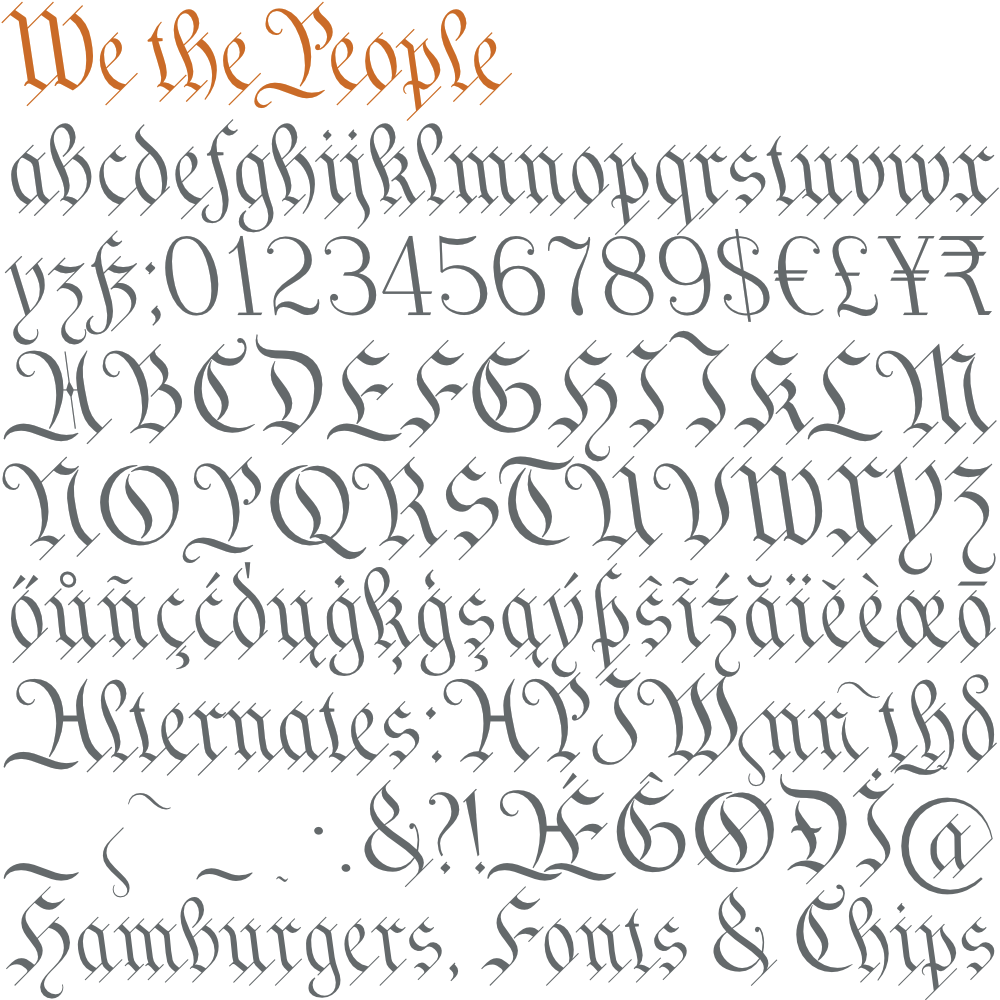 We the People
abcdefghijklmnopqrstuvwx
yzß;0123456789$€£¥₹
ABCDEFGHIJKLM
NOPQRSTUVWXYZ
őůñçćďųġķģşąýþŝĩźăïĕèœō
Alternates: HPJW nn th d
&?!ÆǴØĐİ@
Hamburgers, Fonts & Chips